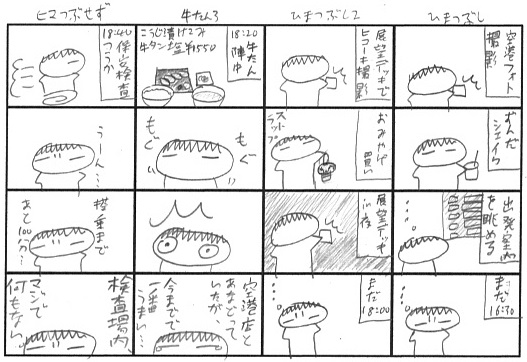 ひまつぶし
空港フォト
撮影
ずんだ
シェイク
出発案内
を眺める
まだ
16:30
ひまつぶし2
展望デッキで
ヒコーキ撮影
おみやげ
買い
スト
ラップ
展望デッキ
in夜
まだ
18:00
牛たん3
18:20 牛たん
陣中
こうじ漬けこみ
牛タン塩 ¥1550
もぐ
もぐ
空港店と
あなどって
いたが、
今までで
一番
うまい…
ヒマつぶせず
18:40 保安検査
つうか
うーん…
搭乗まで
あと100分…
検査場内、
マジで
何もない。